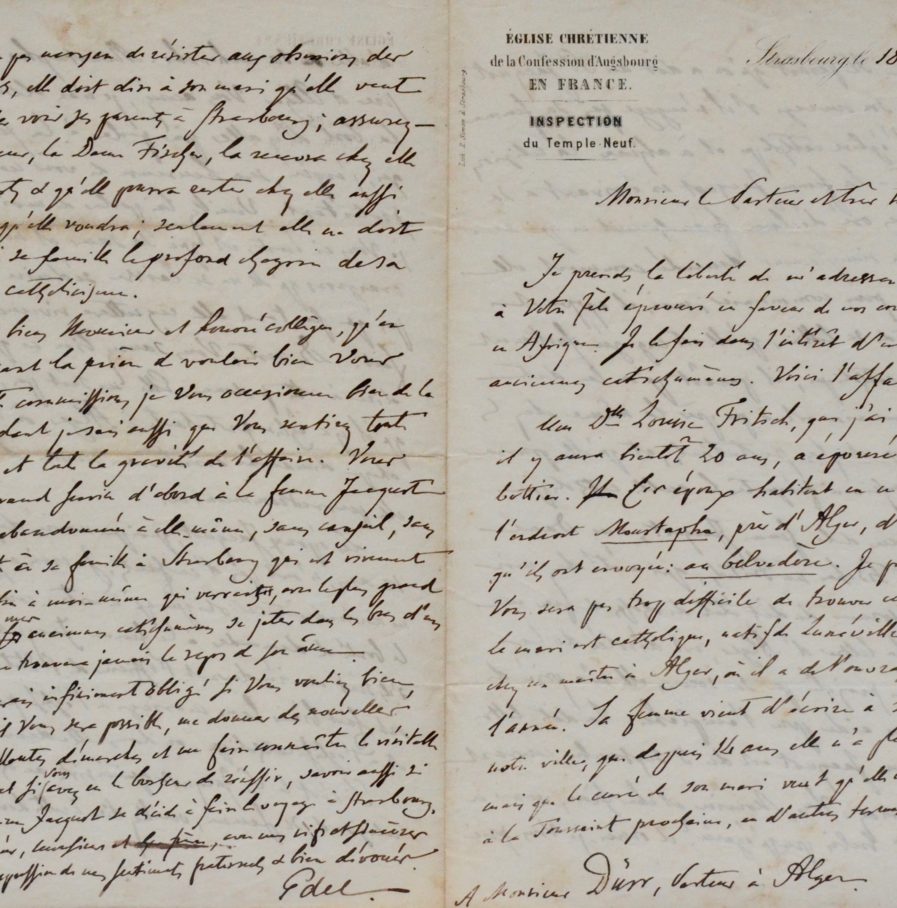 pas moyen de résister aux obsessions des
elle doit dire à son mari qu'elle veut
voir ses parents à Strasbourg; assurez-
la Dame Fischer, la recevra chez elle
& qu'elle pourra rester chez elle aussi
qu'elle voudra; seulement elle ne doit
sa famille le profond chagrin de sa
catholicisme.
bien Monsieur et honoré collègue, qu'en
la prière de vouloir bien Vous
commissions je Vous occasionne bien de la
je sais aussi que Vous sentirez tout
et toute la gravité de l'affaire. Vous
grand service d'abord à la femme Jacquot
abandonnée à elle-même, sans conseil, sans
à sa famille à Strasbourg qui est vivement
à moi-même qui verrais, avec le plus grand
anciennes catéchumènes se jeter dans les bras d'un
trouvera jamais le repos de son âme.
infiniment obligé si Vous vouliez bien,
il Vous sera possible, me donner des nouvelles
démarches et me faire connaître le véritable
si Vous avez eu le bonheur de réussir, savoir aussi si
Jacquot se décide à faire le voyage à Strasbourg.
sentiments fraternels & bien dévoués.
Edel.
ÉGLISE CHRÉTIENNE
de la Confession d'Augsbourg
EN FRANCE.
INSPECTION
du Temple-Neuf.
Strasbourg le 18
Monsieur le Pasteur et très
Je prends la liberté de m'adresser
à Votre zèle éprouvé en faveur de nos
en Afrique. Je le fais dans l'intérêt d'une
anciennes catéchumènes. Voici l'affaire
Une Dlle Louise Fritsch, que j'ai
il y aura bientôt 20 ans, a épousé
bottier. Ces époux habitent en ce
l'endroit Moustapha, près d'Alger,
qu'ils ont envoyée: au belvédère. Je
Vous sera pas trop difficile de trouver
le mari est catholique, natif de Lunéville
chez un maître à Alger, où il a de l'ouvrage
l'année. Sa femme vient d'écrire à
notre ville, que depuis 14 ans elle n'a
mais que le curé de son mari veut qu'elle
à la Toussaint prochaine, en d'autres termes
A Monsieur Dürr, Pasteur à Alger.